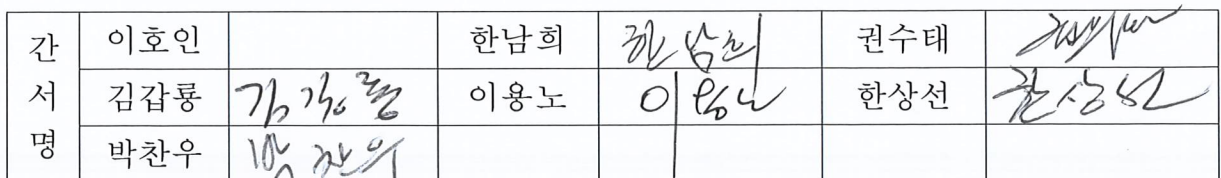 간 이호인 한남희 한남희 권수태
서 김갑룡 김갑룡 이용노 이용노 한상선 한상선
명 박찬우 박찬우